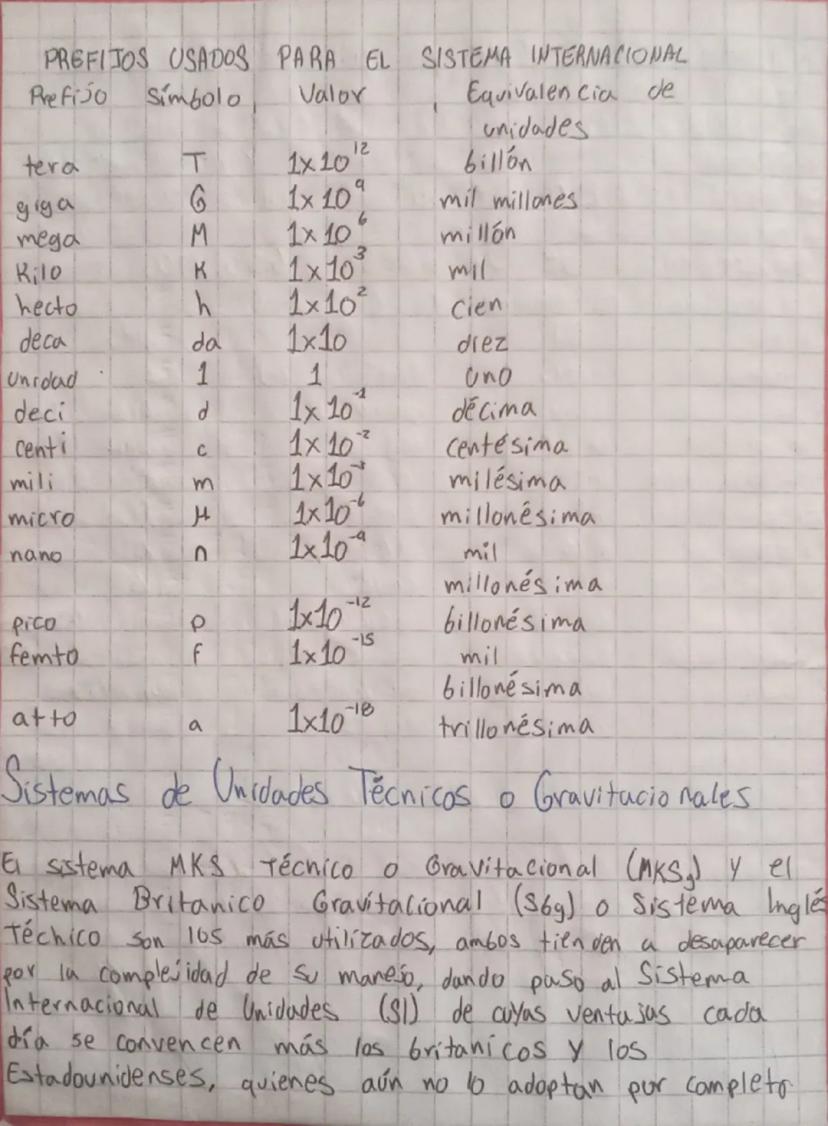 PREFIJOS USADOS PARA EL SISTEMA INTERNACIONAL
Prefijo Símbolo, Valor , Equivalencia de
unidades
tera T 1x10¹² billón
giga G 1x10⁹ mil millones
mega M 1x10⁶ millón
Kilo K 1x10³ mil
hecto h 1x10² cien
deca da 1x10 diez
Unidad 1 1 uno
deci d 1x10⁻¹ décima
centi c 1x10⁻² centésima
mili m 1x10⁻³ milésima
micro μ 1x10⁻⁶ millonésima
nano n 1x10⁻⁹ mil
millonésima
pico p 1x10⁻¹² billonésima
femto f 1x10⁻¹⁵ mil
billonésima
atto a 1x10⁻¹⁸ trillonésima
Sistemas de Unidades Técnicos o Gravitacionales
El sistema MKS técnico o Gravitacional (MKSg) y el
Sistema Britanico Gravitacional (Sbg) o Sistema Inglés
Técnico son los más utilizados, ambos tienden a desaparecer
por la complejidad de su manejo, dando paso al Sistema
Internacional de Unidades (SI) de cuyas ventajas cada
día se convencen más los britanicos y los
Estadounidenses, quienes aún no lo adoptan por completo.